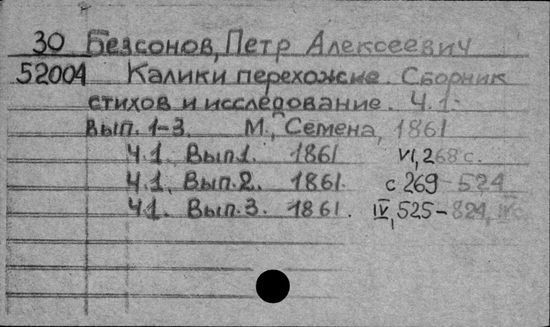 30 Безсонов, Петр Алексеевич
52004 Калики перехожие. Сборник
стихов и исследование. Ч.1.
Вып. 1-3. М., Семена, 1861
Ч.1. Вып.1. 1861 VI, 268 с.
Ч.1. Вып.2. 1861. с 269-524
Ч.1. Вып.3. 1861. IV, 525-824,